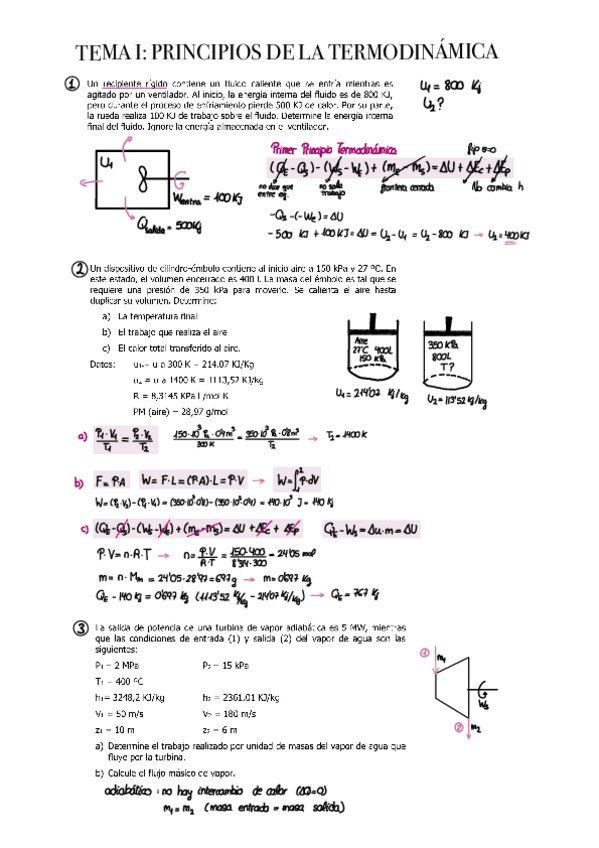 TEMA I: PRINCIPIOS DE LA TERMODINÁMICA
① Un recipiente rígido contiene un fluido caliente que se enfría mientras es
agitado por un ventilador. Al inicio, la energía interna del fluido es de 800 KJ,
pero durante el proceso de enfriamiento pierde 500 KJ de calor. Por su parte,
la rueda realiza 100 KJ de trabajo sobre el fluido. Determine la energía interna
final del fluido. Ignore la energía almacenada en el ventilador.
U₁ = 800 Kj
U₂?
U₁
Wentra = 100 KJ
Qsalida = 500Kj
Primer Principio Termodinámica
(QE - QS) - (WS - WE) + (mE - mS) = ΔU + ΔEc + ΔEp
no dice que entre eq.
no sale trabajo
frontera cerrada
No cambia h
-QS - (-WE) = ΔU
-500 KJ + 100 KJ = ΔU = U₂ - U₁ = U₂ - 800 KJ → U₂ = 400 KJ
② Un dispositivo de cilindro-émbolo contiene al inicio aire a 150 kPa y 27 ºC. En
este estado, el volumen encerrado es 400 l. La masa del émbolo es tal que se
requiere una presión de 350 kPa para moverlo. Se calienta el aire hasta
duplicar su volumen. Determine:
a) La temperatura final
b) El trabajo que realiza el aire
c) El calor total transferido al aire.
Datos: u₁= u a 300 K = 214.07 KJ/Kg
u₂ = u a 1400 K = 1113,52 KJ/kg
R = 8,3145 KPa l/mol K
PM (aire) = 28,97 g/mol
Aire
27ºC 400L
150 KPa
U₁ = 214'07 Kj/Kg
350 KPa
800L
T?
U₂ = 1113'52 Kj/Kg
a) P₁·V₁/T₁ = P₂·V₂/T₂ 150·10³ Pa·0'4m³/300K = 350·10³ Pa·0'8m³/T₂ → T₂ = 1400 K
b) F = P·A W = F·L = (P·A)·L = P·V → W = ∫₁² P·dV
W = (P₂·V₂) - (P₁·V₁) = (350·10³·0'8) - (350·10³·0'4) = 140·10³ J = 140 Kj
c) (QE - QS) - (WS - WE) + (mE - mS) = ΔU + ΔEc + ΔEp QE - WS = Δu·m = ΔU
P·V = n·R·T → n = P·V/R·T = 150·400/8'314·300 = 24'05 mol
m = n·Mm = 24'05·28'97 = 697g → m = 0'697 Kg
QE - 140 Kj = 0'697 Kg (1113'52 Kj/Kg - 214'07 Kj/Kg) → QE = 767 Kj
③ La salida de potencia de una turbina de vapor adiabática es 5 MW, mientras
que las condiciones de entrada (1) y salida (2) del vapor de agua son las
siguientes:
P₁ = 2 MPa P₂ = 15 kPa
T₁ = 400 ºC
h₁ = 3248,2 KJ/kg h₂ = 2361.01 KJ/kg
V₁ = 50 m/s V₂ = 180 m/s
z₁ = 10 m z₂ = 6 m
① m₁
Ws
② m₂
a) Determine el trabajo realizado por unidad de masas del vapor de agua que
fluye por la turbina.
b) Calcule el flujo másico de vapor.
adiabática: no hay intercambio de calor (ΔQ=0)
m₁ = m₂ (masa entrada = masa salida)